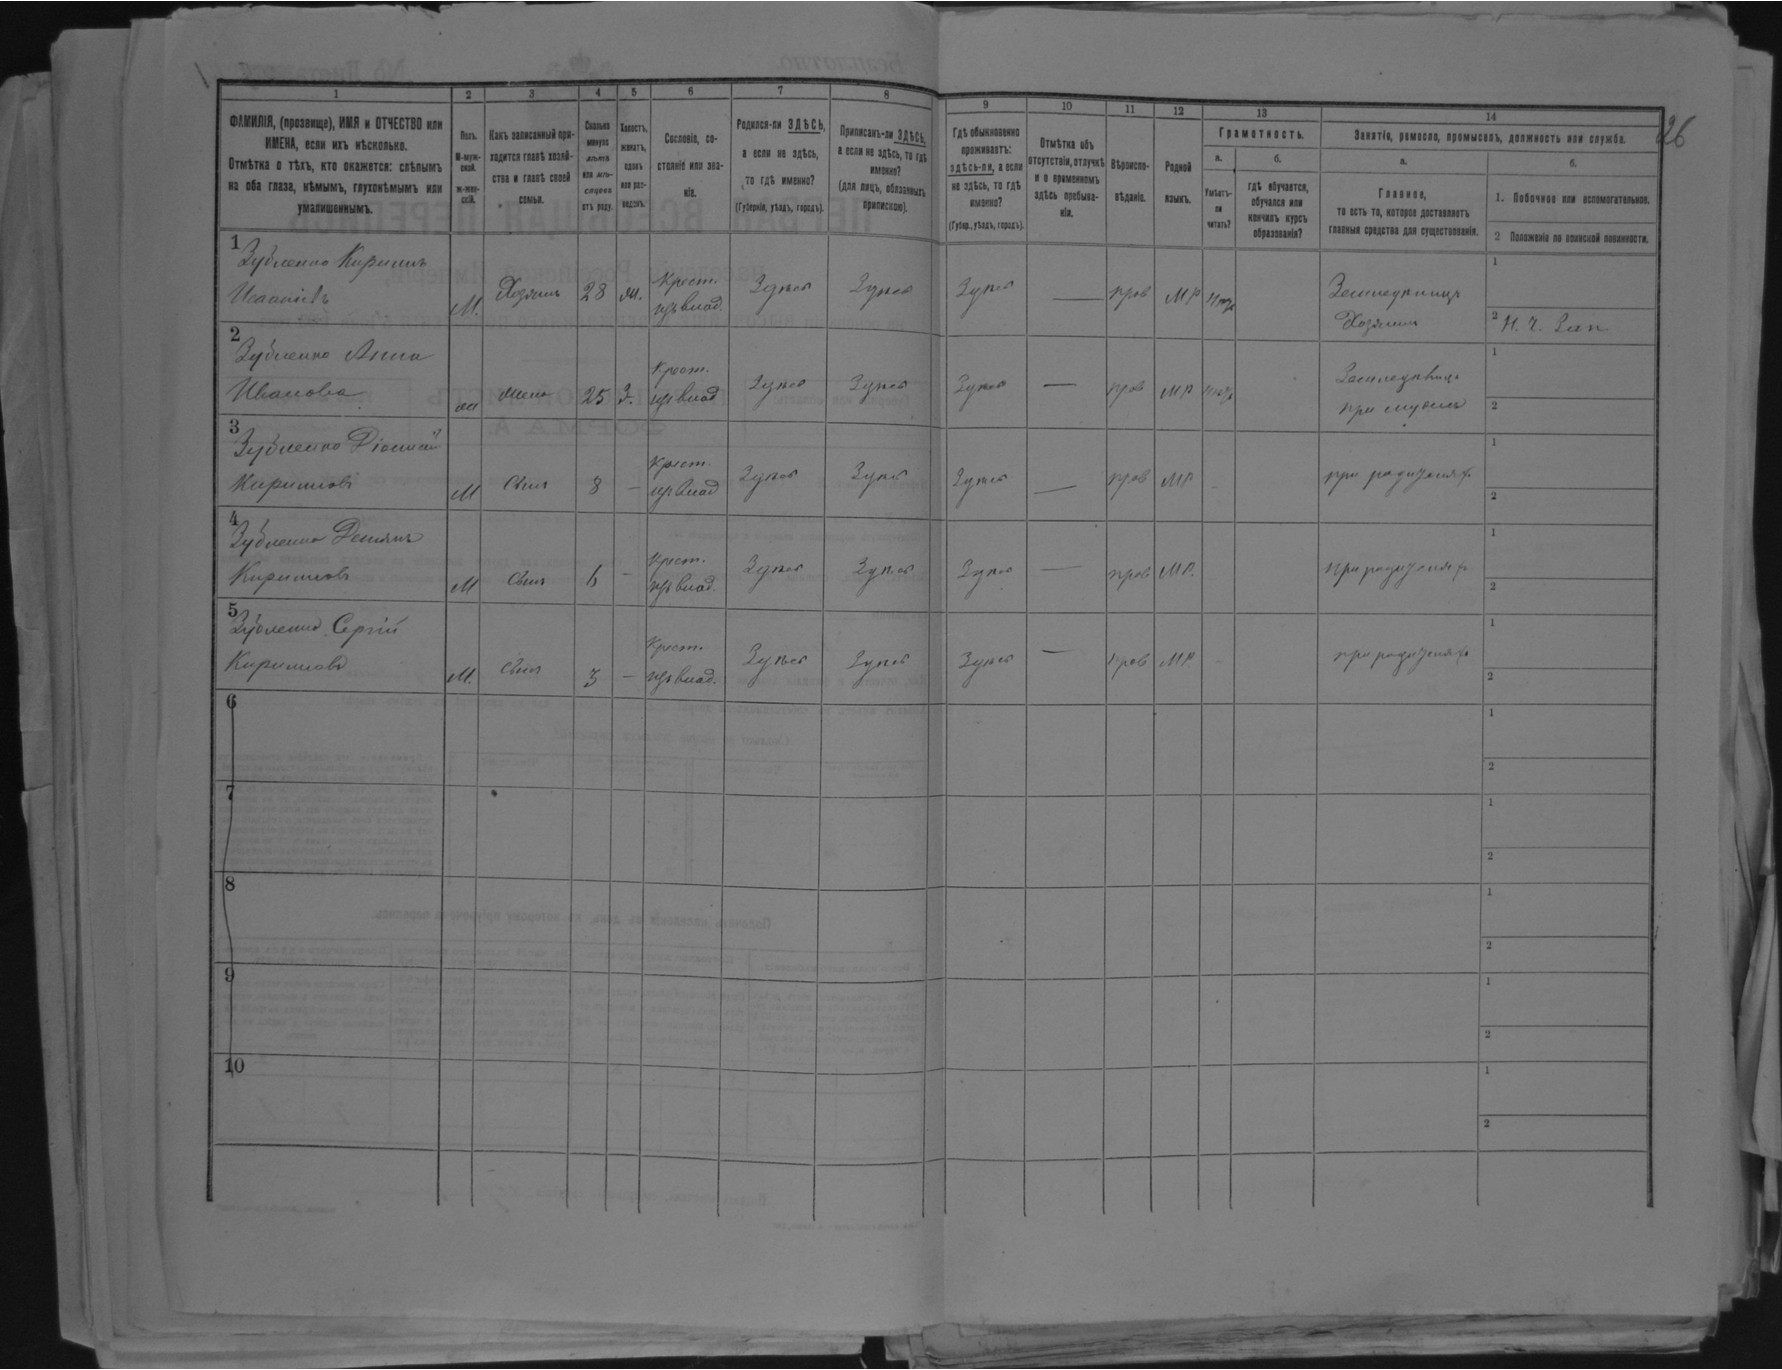 26
1 2 3 4 5 6 7 8 9 10 11 12 13 14
ФАМИЛІЯ, (прозвище), ИМЯ и ОТЧЕСТВО или
ИМЕНА, если ихъ нѣсколько.
Отмѣтка о тѣхъ, кто окажется: слѣпымъ
на оба глаза, нѣмымъ, глухонѣмымъ или
умалишеннымъ.
Полъ.
М-муж-
ской.
ж-жен-
скій.
Какъ записанный при-
ходится главѣ хозяй-
ства и главѣ своей
семьи.
Сколько
минуло
лѣтъ
или мѣ-
сяцевъ
отъ роду.
Холостъ,
женатъ,
вдовъ
или раз-
веденъ.
Сословіе, со-
стояніе или зва-
ніе.
Родился-ли ЗДѢСЬ,
а если не здѣсь,
то гдѣ именно?
(Губернія, уѣздъ, городъ).
Приписанъ-ли ЗДѢСЬ,
а если не здѣсь, то гдѣ
именно?
(для лицъ, обязанныхъ
припискою).
Гдѣ обыкновенно
проживаетъ:
здѣсь-ли, а если
не здѣсь, то гдѣ
именно?
(Губер., уѣздъ, городъ).
Отмѣтка объ
отсутствіи, отлучкѣ
и о временномъ
здѣсь пребыва-
ніи.
Вѣроиспо-
вѣданіе.
Родной
языкъ.
Грамотность.
а.
Умѣетъ-
ли
читать?
б.
гдѣ обучается,
обучался или
кончилъ курсъ
образованія?
Занятія, ремесло, промыселъ, должность или служба.
а.
Главное,
то есть то, которое доставляетъ
главныя средства для существованія.
б.
1. Побочное или вспомогательное.
2 Положеніе по воинской повинности.
1
Зубленко Кирилъ
М. Хозяинъ 28 ж. Крест. изъ влад. Здѣсь Здѣсь Здѣсь — прав МР нѣтъ Земледѣлецъ Хозяинъ
1
2
2
Зубленко Анна
Иванова
ж жена 25 З. Крест. изъ влад Здѣсь Здѣсь Здѣсь — прав МР нѣтъ
1
2
3
Зубленко
Кириловъ
М Сынъ 8 — Крест. изъ влад Здѣсь Здѣсь Здѣсь — прав МР - при родителяхъ
1
2
4
Зубленко Демянъ
Кириловъ
М Сынъ 6 - Крест. изъ влад. Здѣсь Здѣсь Здѣсь — прав МР. при родителяхъ
1
2
5
Зубленко Сергій
Кириловъ
М. сынъ 3 — Крест. изъ влад. Здѣсь Здѣсь Здѣсь — прав МР - при родителяхъ
1
2
6
1
2
7
1
2
8
1
2
9
1
2
10
1
2